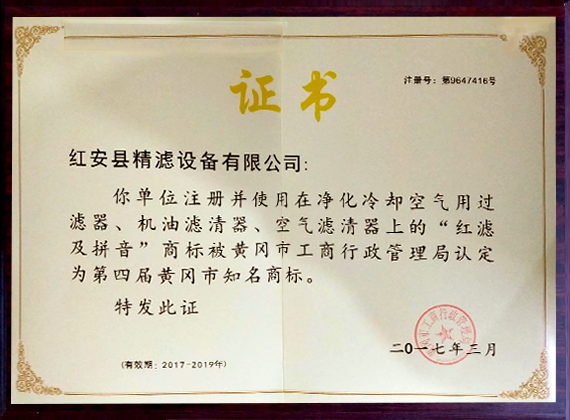 注册号：第9647416号
证书
红安县精滤设备有限公司：
你单位注册并使用在净化冷却空气用过
滤器、机油滤清器、空气滤清器上的“红滤
及拼音”商标被黄冈市工商行政管理局认定
为第四届黄冈市知名商标。
特发此证
二0一七年三月
(有效期：2017-2019年)